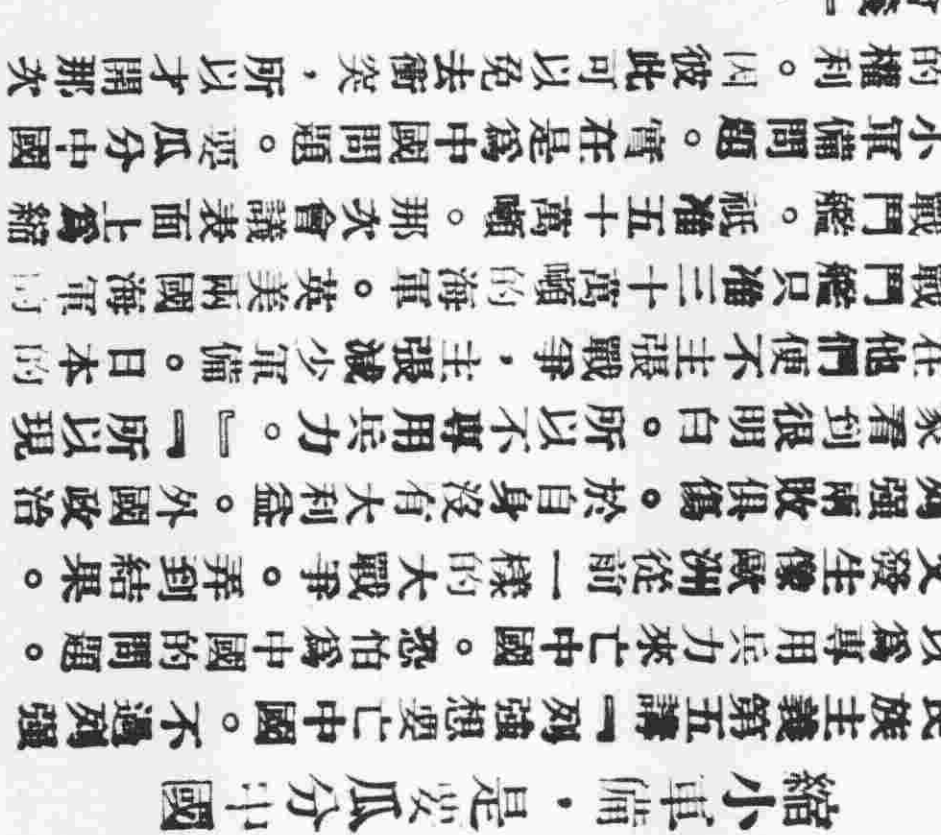 縮小軍備，是要瓜分中國
民族主義第五講『列强想要亡中國。不過列强
以爲專用兵力來亡中國。恐怕爲中國的問題。
又發生像歐洲從前一樣的大戰爭。弄到結果。
列强兩敗俱傷。於自身沒有大利益。外國政治
家看到很明白。所以不專用兵力。』『所以現
在他們便不主張戰爭，主張減少軍備。日本的
戰鬥艦只准三十萬噸的海軍。英美兩國海軍的
戰鬥艦。祇准五十萬噸。那次會議表面上爲縮
小軍備問題。實在是爲中國問題。要瓜分中國
的權利。因彼此可以免去衝突，所以才開那次